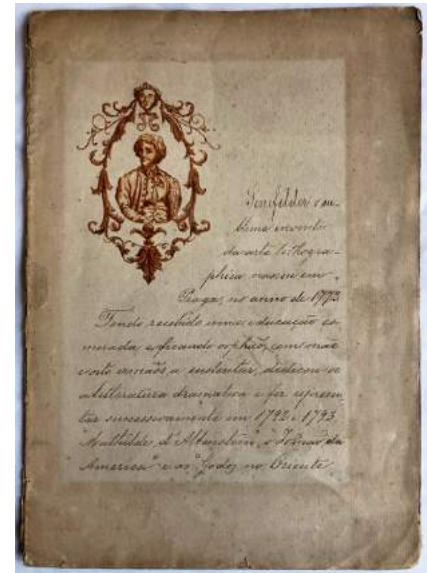 Senefelder o su-
blime inventor
da arte lithogra-
phica nasceu em
Praga, no anno de 1773.
Tendo recebido uma educação es-
merada, e ficando orphão, com mãe
e oito irmãos a sustentar, dedicou-se
a litteratura dramatica e fez represen-
tar successivamente em 1792 e 1793,
"Mathilde d'Altenstein", o "Irmão da
America" e os "Godos no Oriente